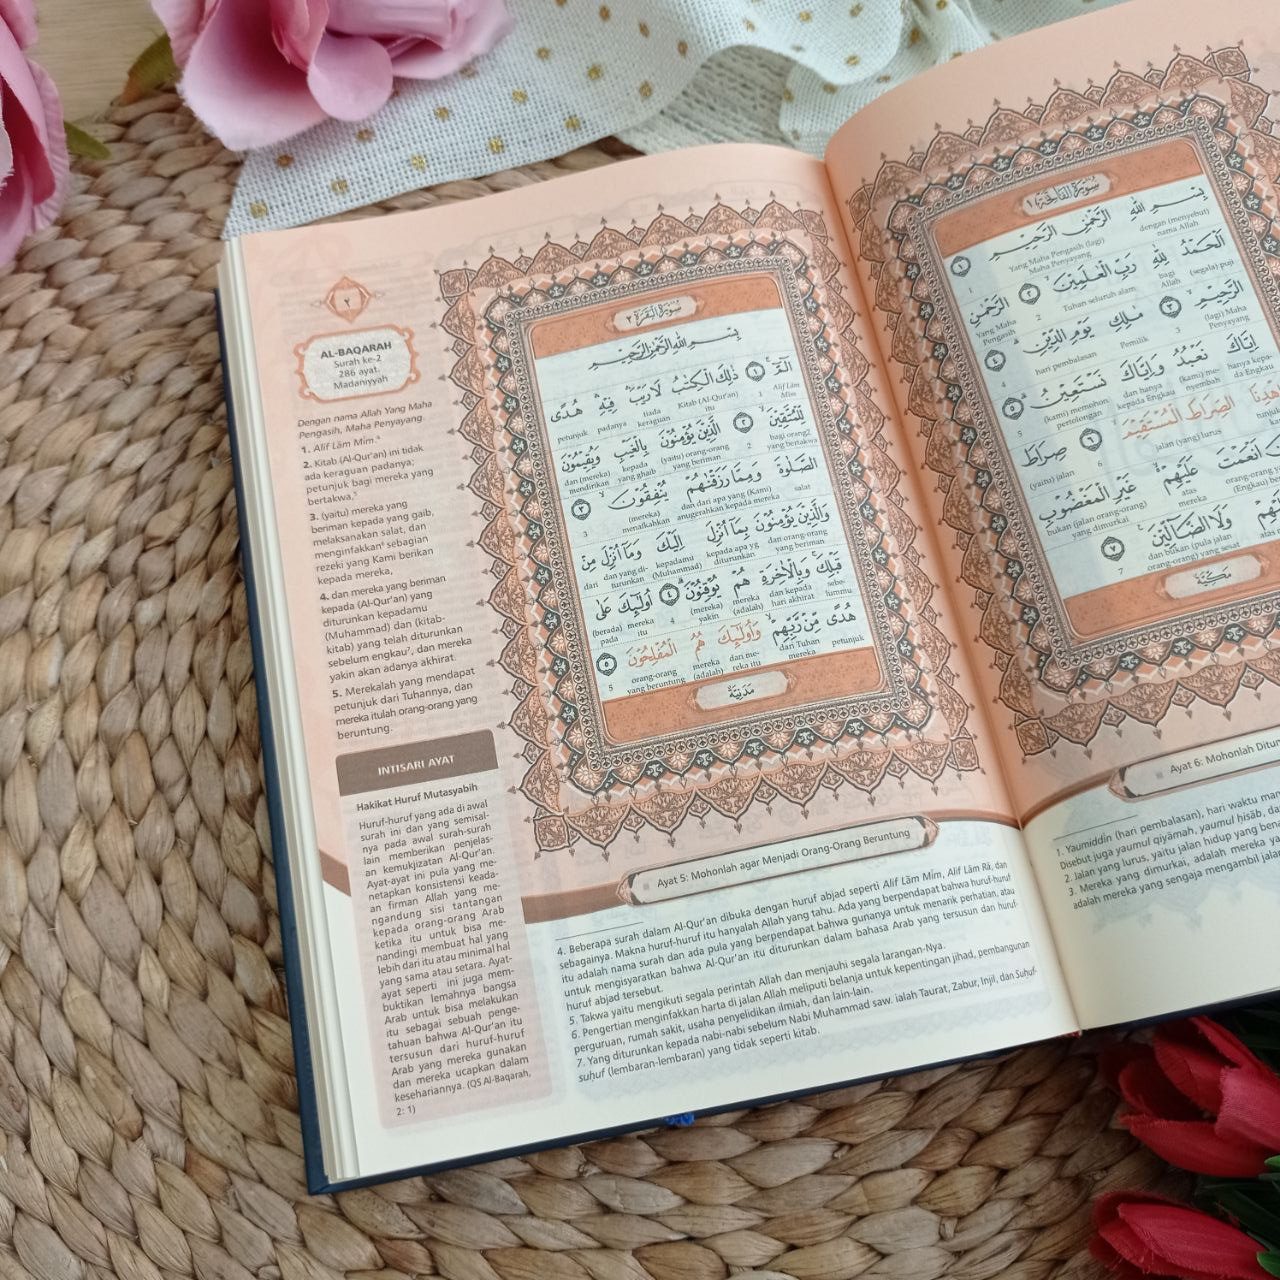 ٢
AL-BAQARAH
Surah ke-2
286 ayat.
Madaniyyah
Dengan nama Allah Yang Maha
Pengasih, Maha Penyayang.
1. Alif Lām Mīm.⁴
2. Kitab (Al-Qur'an) ini tidak
ada keraguan padanya;
petunjuk bagi mereka yang
bertakwa,⁵
3. (yaitu) mereka yang
beriman kepada yang gaib,
melaksanakan salat, dan
menginfakkan⁶ sebagian
rezeki yang Kami berikan
kepada mereka,
4. dan mereka yang beriman
kepada (Al-Qur'an) yang
diturunkan kepadamu
(Muhammad) dan (kitab-
kitab) yang telah diturunkan
sebelum engkau⁷, dan mereka
yakin akan adanya akhirat.
5. Merekalah yang mendapat
petunjuk dari Tuhannya, dan
mereka itulah orang-orang yang
beruntung.
INTISARI AYAT
Hakikat Huruf Mutasyabih
Huruf-huruf yang ada di awal
surah ini dan yang semisal-
nya pada awal surah-surah
lain memberikan penjelas-
an kemukjizatan Al-Qur'an.
Ayat-ayat ini pula yang me-
netapkan konsistensi keada-
an firman Allah yang me-
ngandung sisi tantangan
kepada orang-orang Arab
ketika itu untuk bisa me-
nandingi membuat hal yang
lebih dari itu atau minimal hal
yang sama atau setara. Ayat-
ayat seperti ini juga mem-
buktikan lemahnya bangsa
Arab untuk bisa melakukan
itu sebagai sebuah penge-
tahuan bahwa Al-Qur'an itu
tersusun dari huruf-huruf
Arab yang mereka gunakan
dan mereka ucapkan dalam
kesehariannya. (QS Al-Baqarah,
2: 1)
سُوْرَةُ الْبَقَرَةِ ٢
بِسْمِ اللّٰهِ الرَّحْمٰنِ الرَّحِيْمِ
الۤمّۤ ۚ ١ ذٰلِكَ الْكِتٰبُ لَا رَيْبَ ۛ فِيْهِ ۛ هُدًى
Alif Lām Mīm 1 Kitab (Al-Qur'an) itu tiada keraguan padanya petunjuk
لِّلْمُتَّقِيْنَۙ ٢ الَّذِيْنَ يُؤْمِنُوْنَ بِالْغَيْبِ وَيُقِيْمُوْنَ
bagi orang2 yang bertakwa 2 (yaitu) orang-orang yang beriman kepada yang ghaib dan (mereka) mendirikan
الصَّلٰوةَ وَمِمَّا رَزَقْنٰهُمْ يُنْفِقُوْنَۙ ٣
salat dan dari apa yang (Kami) anugerahkan kepada mereka (mereka) menafkahkan 3
وَالَّذِيْنَ يُؤْمِنُوْنَ بِمَآ اُنْزِلَ اِلَيْكَ وَمَآ اُنْزِلَ مِنْ
dan orang-orang yang beriman kepada apa yg diturunkan kepadamu (Muhammad) dan yang di-turunkan dari
قَبْلِكَۚ وَبِالْاٰخِرَةِ هُمْ يُوْقِنُوْنَۗ ٤ اُولٰۤىِٕكَ عَلٰى
sebe-lummu dan kepada hari akhirat mereka (adalah) (mereka) yakin 4 mereka itu (berada) pada
هُدًى مِّنْ رَّبِّهِمْۙ وَاُولٰۤىِٕكَ هُمُ الْمُفْلِحُوْنَ ٥
petunjuk dari Tuhan mereka dan me-reka itu mereka (adalah) orang-orang yang beruntung 5
مَدَنِيَّةٌ
Ayat 5: Mohonlah agar Menjadi Orang-Orang Beruntung
4. Beberapa surah dalam Al-Qur'an dibuka dengan huruf abjad seperti Alif Lām Mīm, Alif Lām Rā, dan
sebagainya. Makna huruf-huruf itu hanyalah Allah yang tahu. Ada yang berpendapat bahwa huruf-huruf
itu adalah nama surah dan ada pula yang berpendapat bahwa gunanya untuk menarik perhatian, atau
untuk mengisyaratkan bahwa Al-Qur'an itu diturunkan dalam bahasa Arab yang tersusun dari huruf-
huruf abjad tersebut.
5. Takwa yaitu mengikuti segala perintah Allah dan menjauhi segala larangan-Nya.
6. Pengertian menginfakkan harta di jalan Allah meliputi belanja untuk kepentingan jihad, pembangunan
perguruan, rumah sakit, usaha penyelidikan ilmiah, dan lain-lain.
7. Yang diturunkan kepada nabi-nabi sebelum Nabi Muhammad saw. ialah Taurat, Zabur, Injil, dan Suḥuf-
suḥuf (lembaran-lembaran) yang tidak seperti kitab.
سُوْرَةُ الْفَاتِحَةِ ١
بِسْمِ اللّٰهِ الرَّحْمٰنِ الرَّحِيْمِ ١
dengan (menyebut) nama Allah Yang Maha Pengasih (lagi) Maha Penyayang 1
اَلْحَمْدُ لِلّٰهِ رَبِّ الْعٰلَمِيْنَۙ ٢ الرَّحْمٰنِ
(segala) puji bagi Allah Tuhan seluruh alam 2 Yang Maha Pengasih
الرَّحِيْمِۙ ٣ مٰلِكِ يَوْمِ الدِّيْنِۗ ٤
(lagi) Maha Penyayang 3 Pemilik hari pembalasan 4
اِيَّاكَ نَعْبُدُ وَاِيَّاكَ نَسْتَعِيْنُۗ ٥
hanya kepa-da Engkau (kami) me-nyembah dan hanya kepada Engkau (kami) memohon pertolongan 5
الصِّرَاطَ الْمُسْتَقِيْمَۙ ٦ صِرَاطَ
jalan (yang) lurus 6 (yaitu) jalan
اَنْعَمْتَ عَلَيْهِمْ ەۙ غَيْرِ الْمَغْضُوْبِ
atas mereka bukan (jalan orang-orang) yang dimurkai
وَلَا الضَّاۤلِّيْنَ ٧
dan bukan (pula jalan orang-orang) yang sesat 7
مَكِّيَّةٌ
Ayat 6: Mohonlah
1. Yaumiddin (hari pembalasan), hari waktu
Disebut juga yaumul qiyāmah, yaumul ḥisāb,
2. Jalan yang lurus, yaitu jalan hidup yang
3. Mereka yang dimurkai, adalah mereka
adalah mereka yang sengaja mengambil